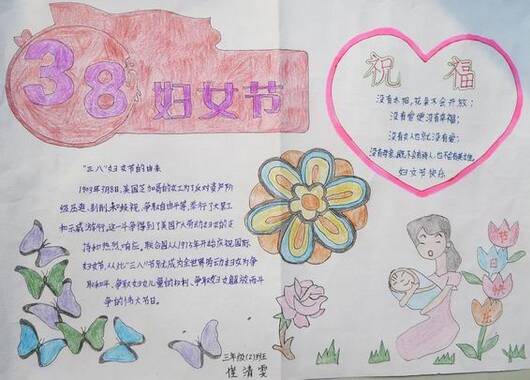 38 妇女节
祝福
没有太阳,花朵不会开放;
没有爱便没有幸福;
没有女人也就没有爱;
没有母亲,既不会有诗人,也不会有英雄。
妇女节快乐
"三八"妇女节的由来
1909年3月8日,美国芝加哥的女工为了反对资产阶
级压迫、剥削和歧视,争取自由平等,举行了大罢工
和示威游行,这一斗争得到了美国广大劳动妇女的支
持和热烈响应。联合国从1975年开始庆祝国际
妇女节,从此"三八"节就成为全世界劳动妇女为争
取和平、争取妇女儿童的权利、争取妇女解放而斗
争的伟大节日。
节日快乐
三年级(2)班
崔清雯